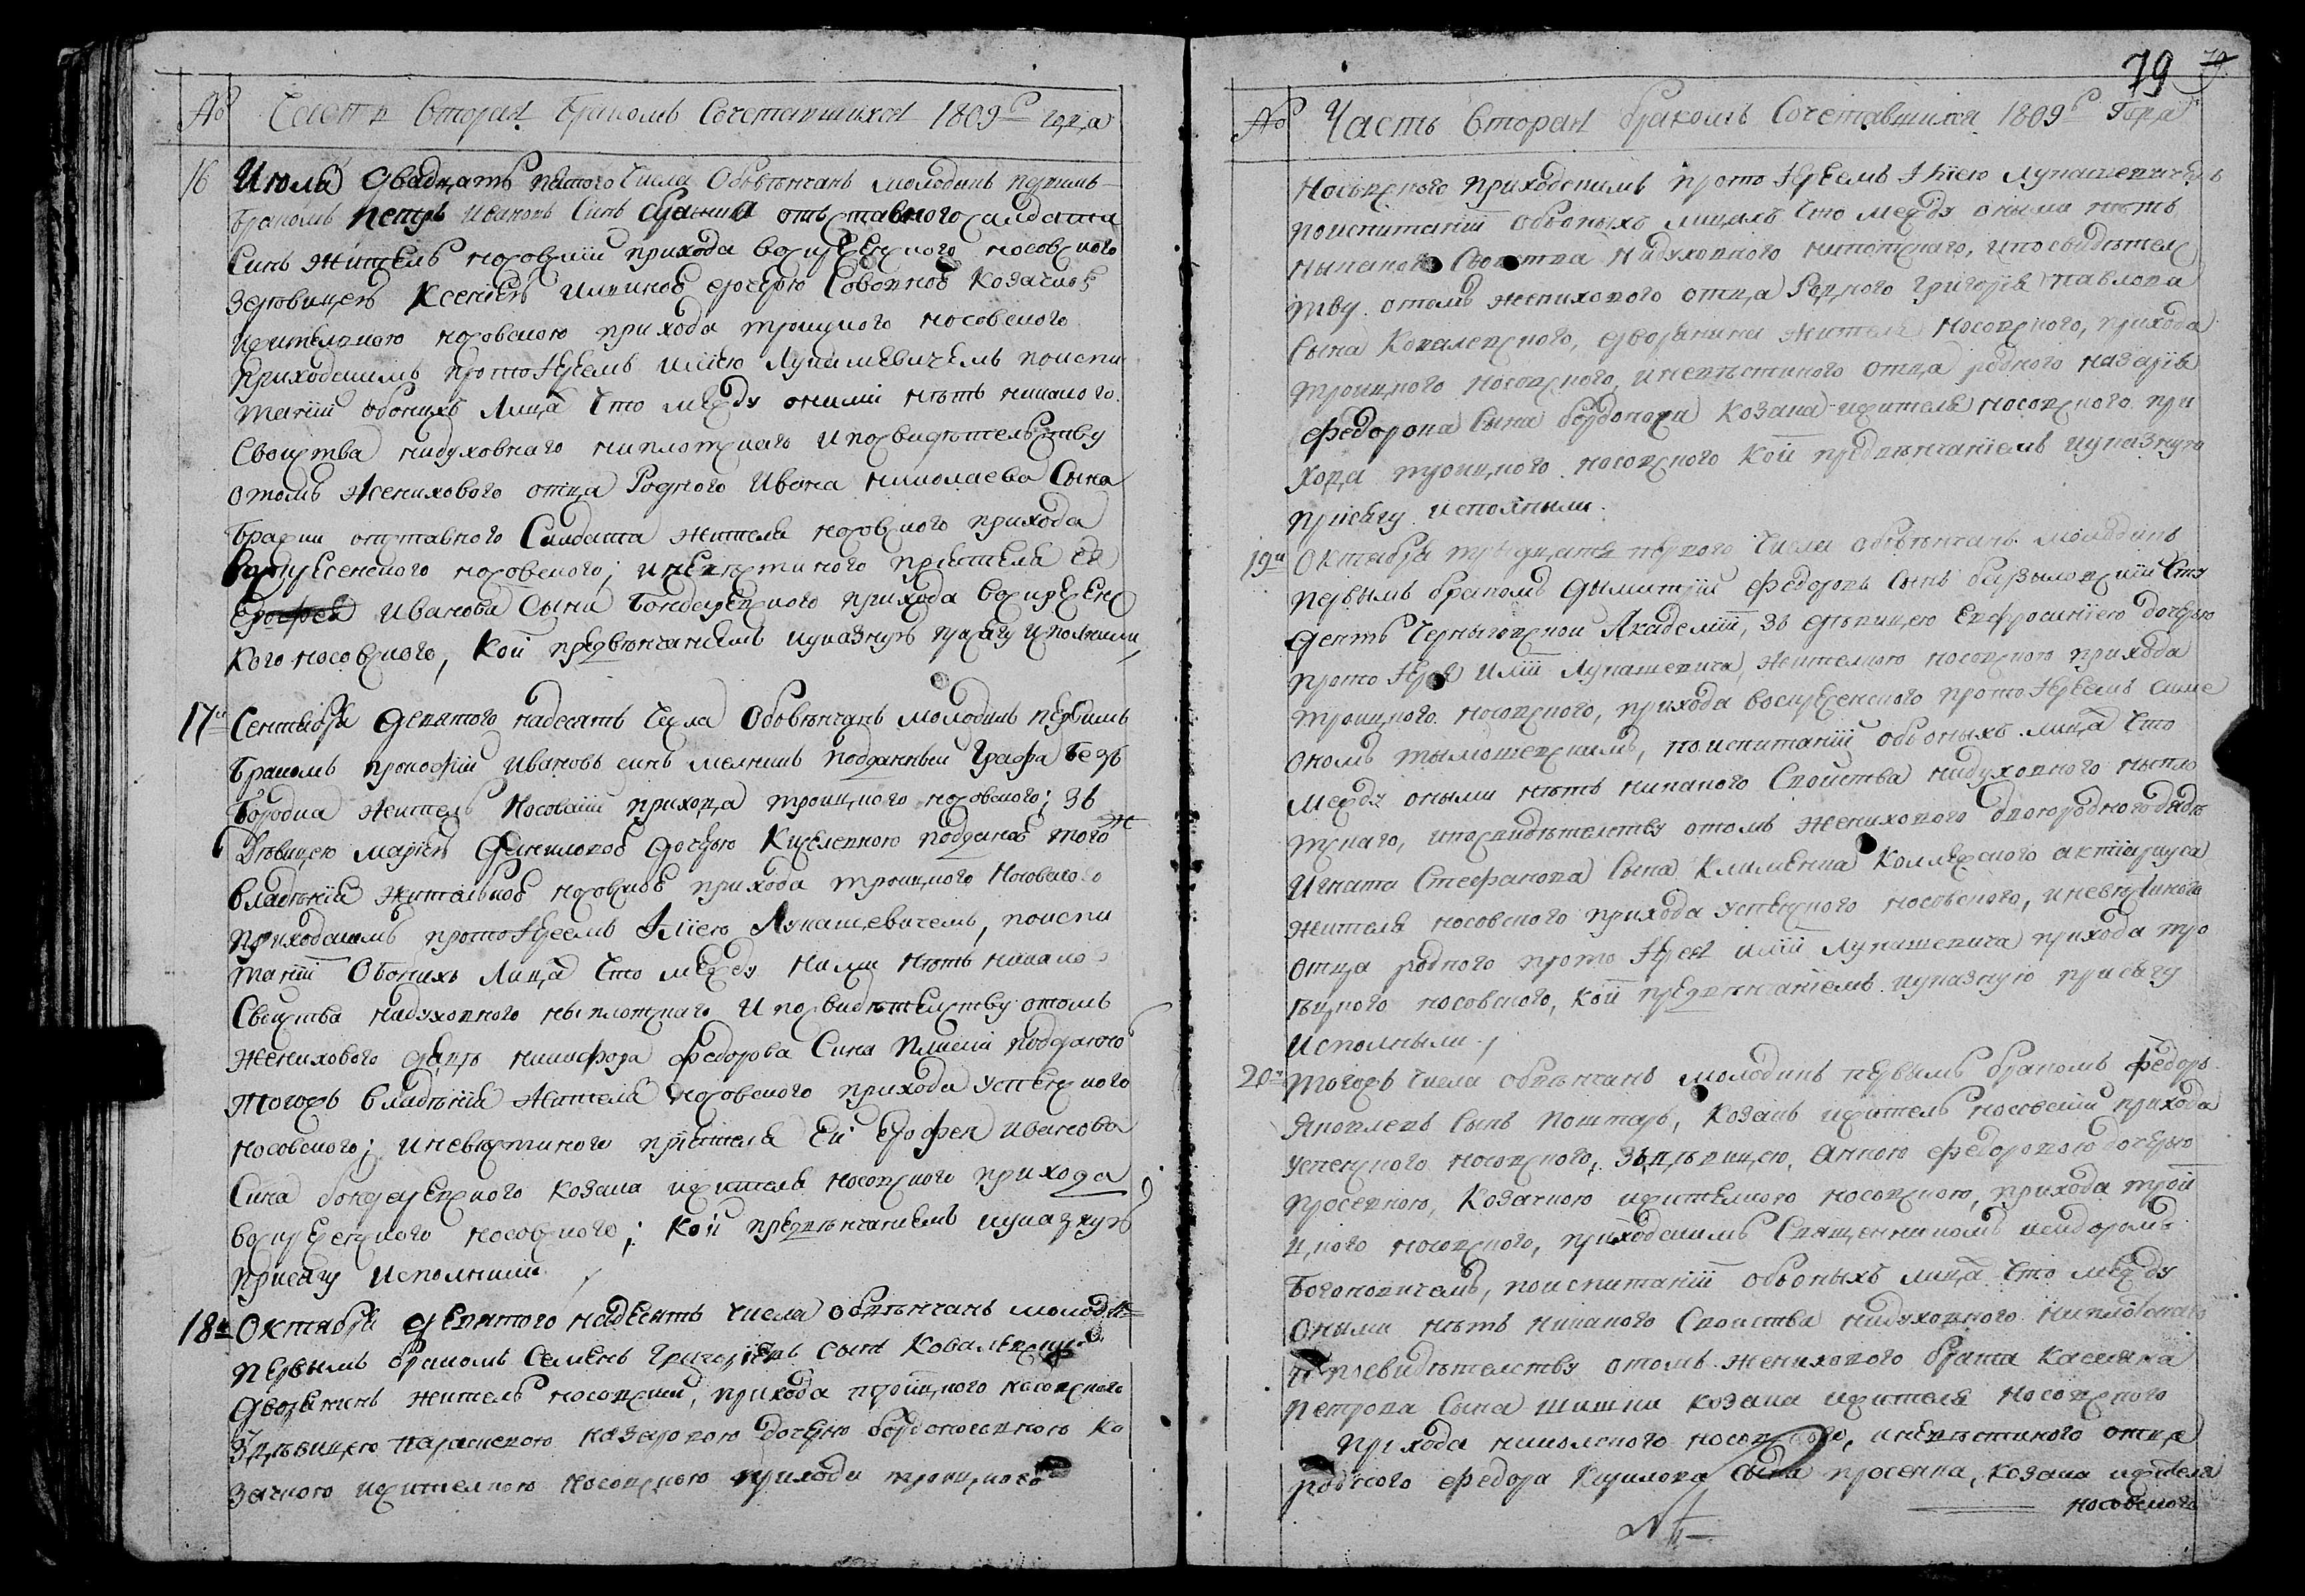 № Часть Вторая бракомъ Сочетавшихся 1809го года
16 Июля Двадцать пятого Числа Обвѣнчанъ молодикъ первимъ
бракомъ Петръ Ивановъ Синъ отъставного салдата
Синъ Житель носовский прихода воскресенского носовского
Зедѣвицею Ксениею дочерю Козачкою
жителкою носовскою прихода троицкого носовского
приходскимъ протоІереемъ Илиею Лукашевичемъ поиспи
танiи обоихъ Лицъ Что между оними нѣтъ никакого
Свойства нидуховнаго ниплотскаго Ипосвидѣтельству
отомъ Женихового отца Родного Ивана николаева Сына
отставного Салдата жителя носовского прихода
воскресенского носовского; Иневѣстиного приятеля Ей
Ерофея Иванова Сына Бондаревского прихода воскресенс
кого носовского, Кои предвѣнчаниемъ указную присягу Исполнили,
17й Сентября Девятого надесять Числа Обовѣнчанъ молодикъ первимъ
бракомъ прокофий Ивановъ синъ мелникъ подданный Графа Безъ
бородка житель Носовский прихода троицкого носовского; зъ
Дѣвицею мариею Даниловою Дочерю Киселевною подданою того Ж
владѣния Жительною носовскою прихода троицкого Носовского
приходскимъ протоІереемъ Илиею Лукашевичемъ, поиспи
танiи Обоихъ Лицъ Что между ними нѣтъ никакого
Свойства нидуховного ныплотскаго И посвидѣтелству отомъ
Женихового дядѣ никифора федорова Сина подданого
тогожъ владѣния жителя носовского прихода успенского
носовского; иневѣстиного приятеля Ей Ерофея Иванова
Сина бондаревского козака жителя носовского прихода
воскресенского носовского; Кои предвѣнчаниемъ указную
присягу Исполнили
18й Октября девятого надесять числа обвѣнчанъ молодикъ
первымъ бракомъ Семенъ Григориевъ сынъ Ковалевский
Дворянинъ житель носовский, прихода троицкого носовского
зъдѣвицею параскевою назаровою дочерю бордоносовною Ко
зачкою жителкою носовскою прихода троицкого
79
№ Часть Вторая бракомъ Сочетавшихся 1809го Года
Носовского приходскимъ протоІереемъ Илiею Лукашевичемъ
поиспитанiи обоныхъ лицахъ Что между оными нѣтъ
ныкакого Свойства нидуховного ниплотскаго, ипосвидѣтелс
тву отомъ женихового отца Родного Григория павлова
Сына Ковалевского, дворянина жителя носовского, прихода
троицкого носовского, иневѣстиного отца родного назария
федорова Сына бордоноса козака жителя носовского при
хода троицкого носовского Кои предвѣнчанiемъ указную
присягу исполныли.
19й Октября тридцать первого Числа обовѣнчанъ молодикъ
первымъ бракомъ Дымитрiй Федоровъ Сынъ Базылевский Сту
дентъ Черныговской Академiи, зъ дѣвицею Евфросинiею дочерю
протоІерея Илiи Лукашевича, жителкою носовскою прихода
троицкого носовского, прихода воскресенского протоІереемъ симе
ономъ тымошевскимъ, поиспитанiи обооныхъ лицъ Что
между оными нѣтъ никакого Свойства нидуховного ныпло
тскаго, ипосвидѣтелству отомъ женихового двоюродного дядѣ
Игната Стефанова Сына Клименка Коллежского актуариуса
жителя носовского прихода успенского носовского, иневѣстиного
отца родного протоІерея илiи Лукашевича прихода тро
ицкого носовского, кои предвѣнчанiемъ указную присягу
Исполныли.
20й тогожъ числа обвѣнчанъ молодикъ первымъ бракомъ Федоръ
Яковлевъ Сынъ поштаръ, козакъ житель носовский прихода
успенского носовского, зъдѣвицею, Анною Федоровою дочерю
просенною, Козачкою жителкою носовскою, прихода трои
цкого носовского, приходскимъ Священникомъ исидоромъ
Богоновичемъ, поиспитанiи обооныхъ лицъ Что между
Оными нѣтъ никакого Свойства нидуховного ниплотскаго
ипосвидѣтелству отомъ женихового брата касияна
Петрова Сына шишки козака жителя носовского
прихода николского носовского, иневѣстиного отца
родного федора Кирилова Сына просенка, козака жителя
носовского